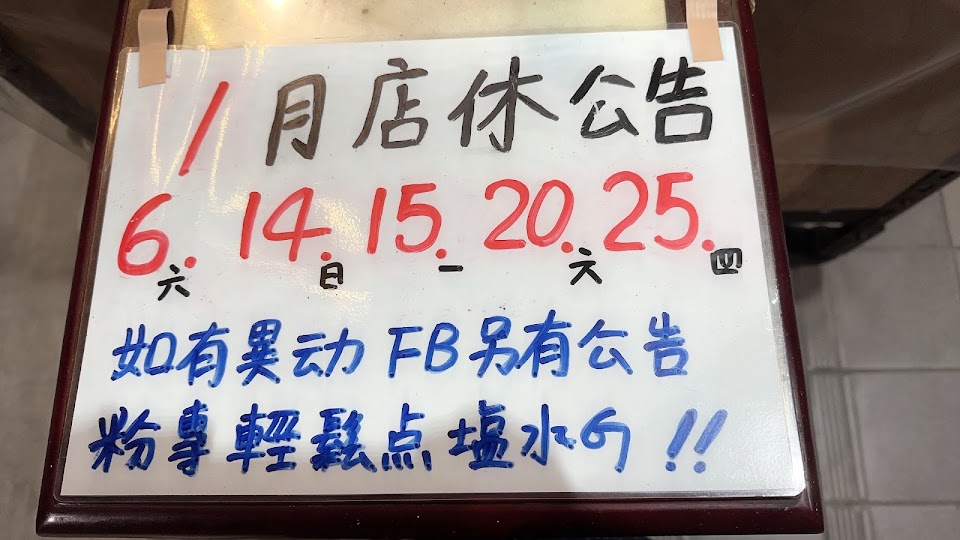 1月店休公告
6. 14. 15. 20. 25.
六 日 一 六 四
如有異动FB另有公告
粉專輕鬆点塩水G!!